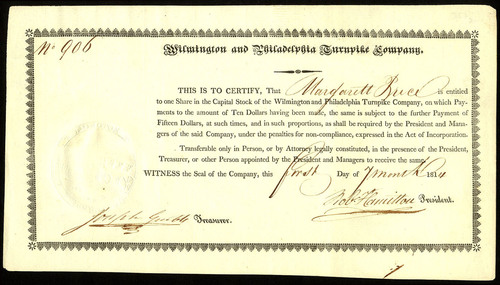 No 906
Wilmington and Philadelphia Turnpike Company.
THIS IS TO CERTIFY, That Margarett Rice is entitled
to one Share in the Capital Stock of the Wilmington and Philadelphia Turnpike Company, on which Pay-
ments to the amount of Ten Dollars having been made, the same is subject to the further Payment of
Fifteen Dollars, at such times, and in such proportions, as shall be required by the President and Mana-
gers of the said Company, under the penalties for non-compliance, expressed in the Act of Incorporation.
Transferable only in Person, or by Attorney legally constituted, in the presence of the President,
Treasurer, or other Person appointed by the President and Managers to receive the same.
WITNESS the Seal of the Company, this first Day of 7 month 18
Joseph Treasurer.
Rob. Hamilton President.